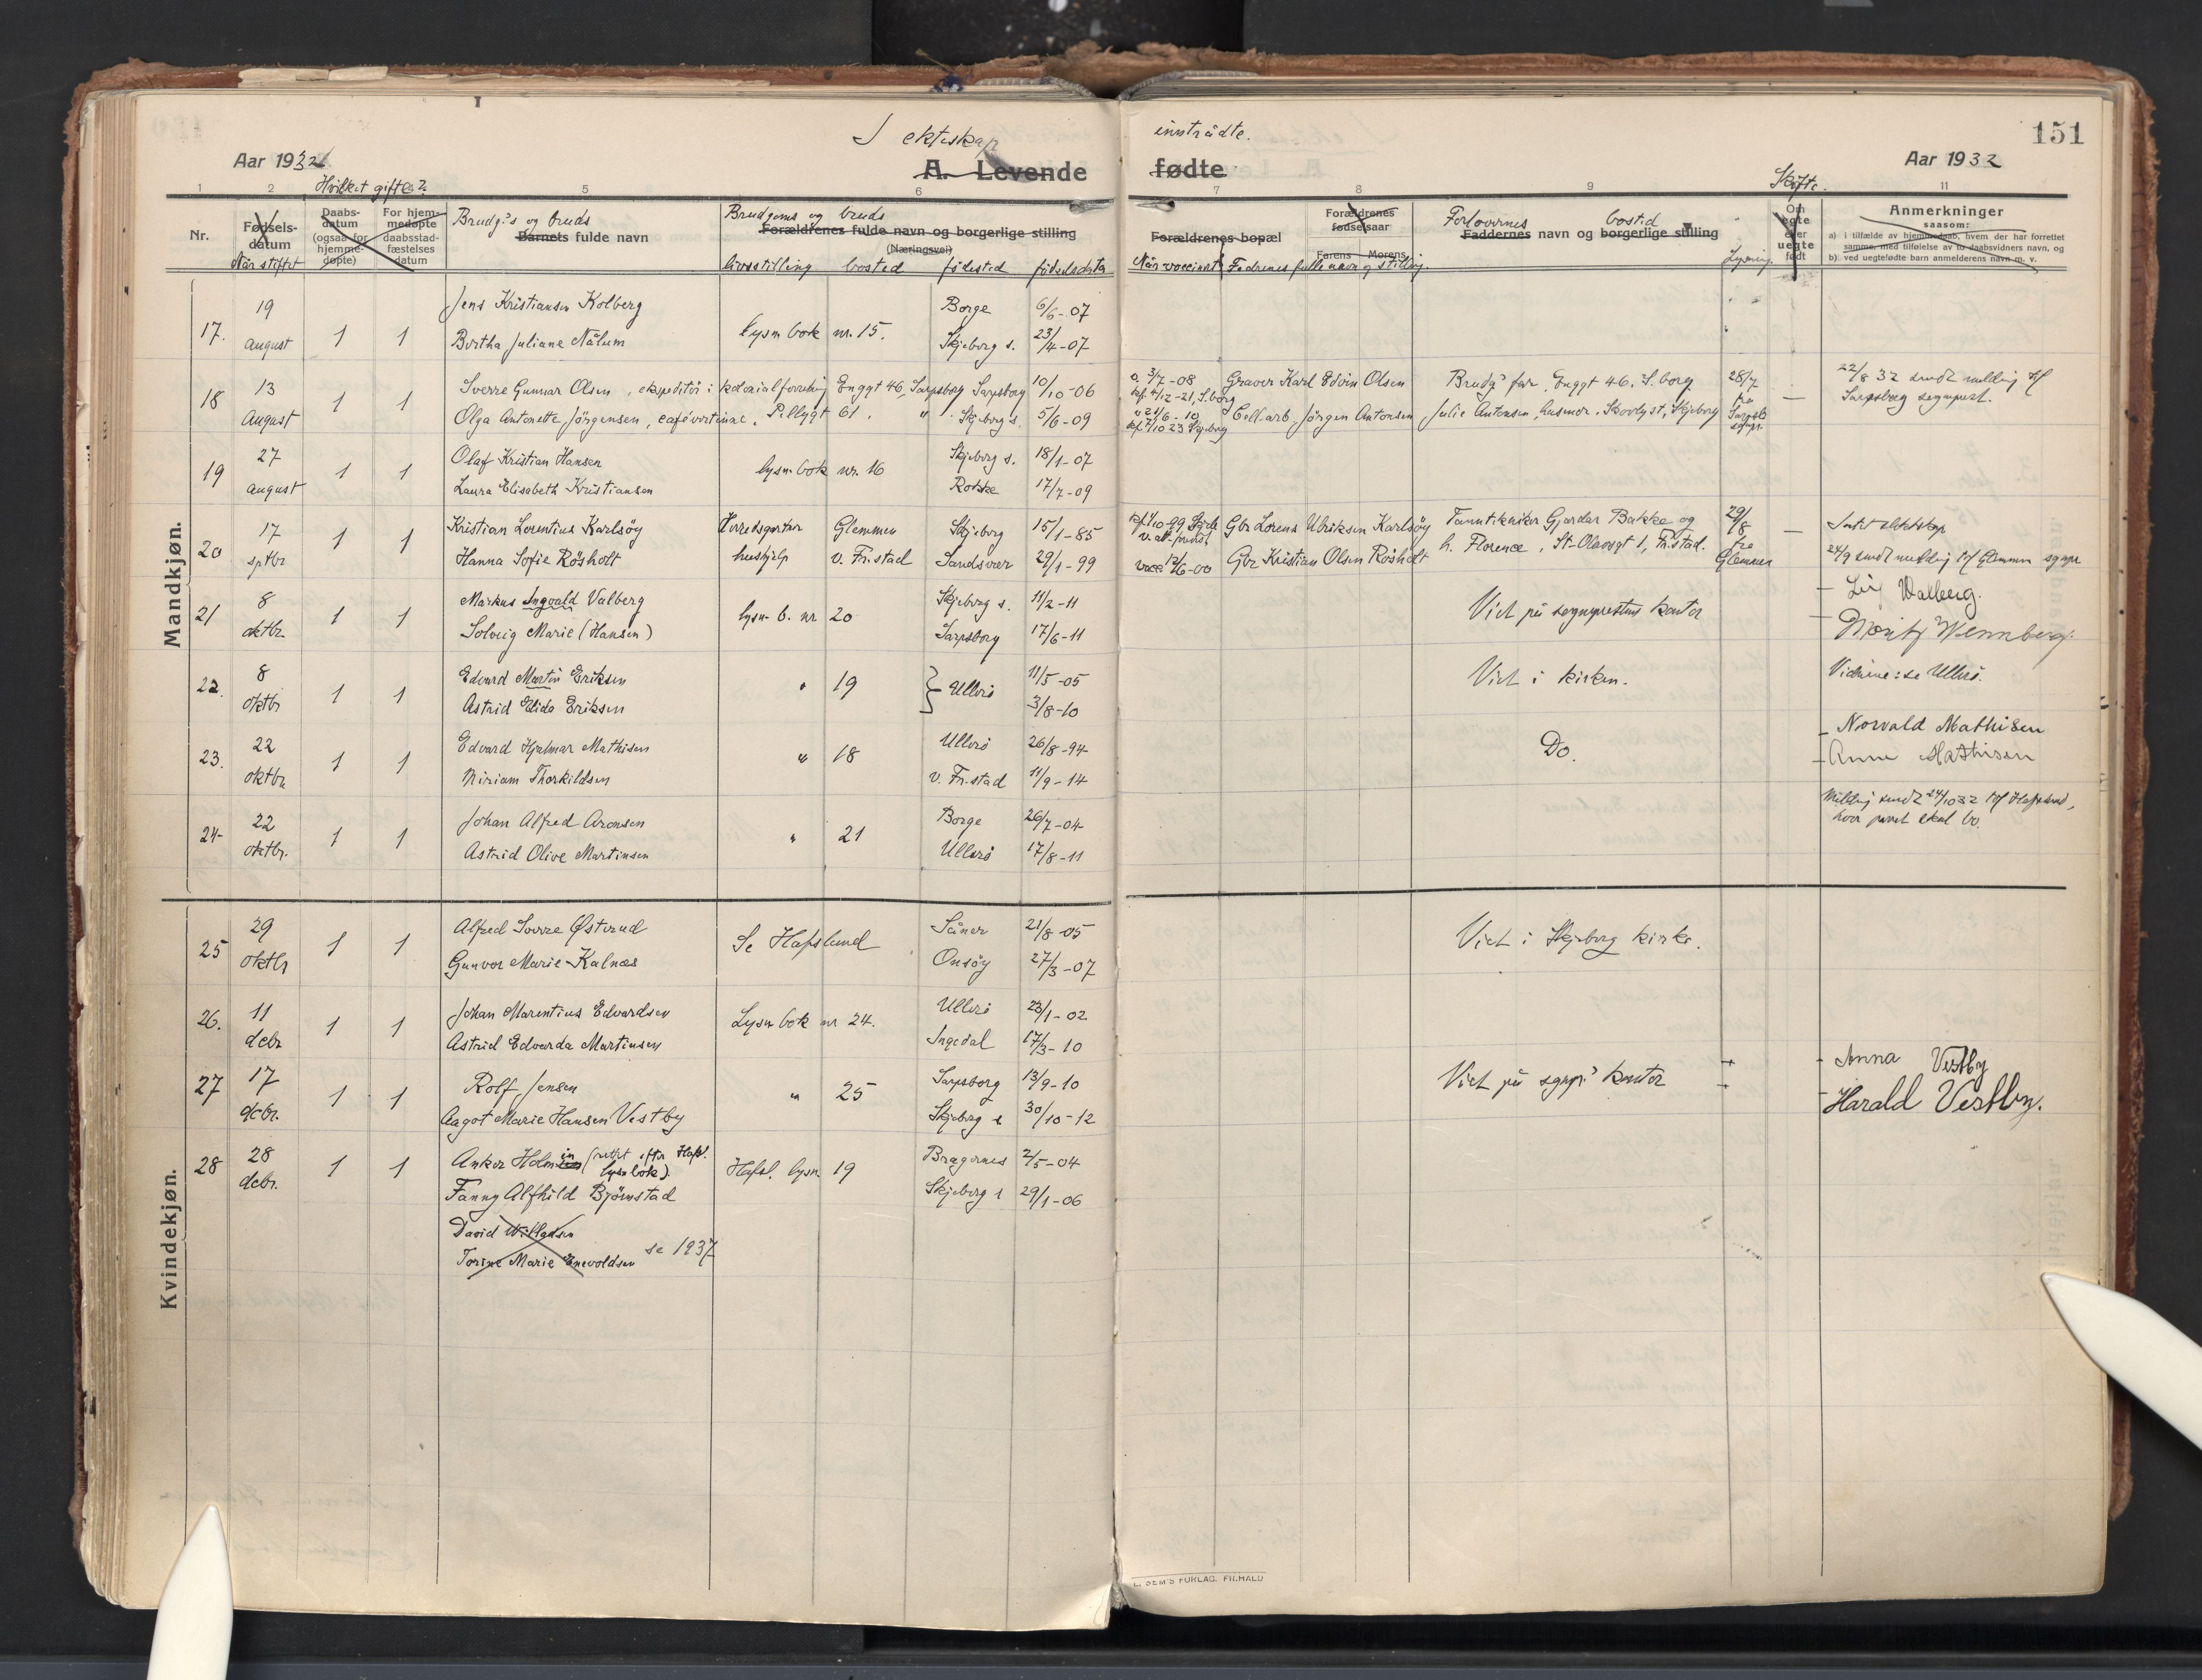 I ektskap inntrådte.
151
Aar 1932
A. Levende fødte
Aar 1932
Hvilket gifte?
Skifte.
1 2 5 6 7 8 9 11
Nr.
Fødsels-
datum
Når stiftet
Daabs-
datum
(ogsaa for
hjemme-
døpte)
For hjem-
medøpte
daabsstad-
fæstelses
datum
Brudg.s og bruds
Barnets fulde navn
Brudgoms og bruds
Forældrenes fulde navn og borgerlige stilling
(Næringsvei)
livsstilling bosted fødested fødselsdata
Forældrenes bopæl
Når vaccinert
Forældrenes
fødselsaar
Farens Morens
Fedrenes fulle navn og stilling.
Forlovernes bosted
Faddernes navn og borgerlige stilling
Lysning.
Om
egte
eller
uegte
født
Anmerkninger
saasom:
a) i tilfælde av hjemmedaab, hvem der har forrettet
samme, med tilføielse av to daabsvidners navn, og
b) ved uegtefødte barn anmelderens navn m. v.
Mandkjøn.
17. 19 august 1 1 Jens Kristiansen Kolberg Borge 6/6-07
Bertha Juliane Nålum lysn bok nr. 15. Skjeberg s. 23/4-07
18 13 August 1 1 Sverre Gunnar Olsen, ekspeditør i kolonialforretning Enggt 46, Sarpsborg Sarpsborg 10/10-06 3/7-08 Graver Karl Edvin Olsen Brudg's far, Enggt 46, S.borg 28/7 — 22/8 32 sendt melding til
Sarpsborg sogneprest.
Olga Antonette Jörgensen, cafévertinne, Pellygt 61. " Skjeberg s. 5/6-09 Cell.arb. Jörgen Antonsen Julie Antonsen, husmor, Skovlyst, Skjeberg fra Sarpsb.
19 27 august 1 1 Olaf Kristian Hansen Skjeberg s. 18/1-07
Laura Elisabeth Kristiansen lysn bok nr. 16 Rokke 17/7-09
20 17 sptbr 1 1 Kristian Lorentius Karlsöy Herredsgartner Glemmen Skjeberg 15/1-85 Gbr Lorens Ulriksen Karlsöy Tanntekniker Gjardar Bakke og 29/8 — Intet slektskap
Hanna Sofie Rösholt hushjelp v. Fr.stad Sandsvær 29/1-99 vacc 12/6-00 Gbr Kristian Olsen Rösholt h. Florence, St-Olavsgt 1, Fr.stad. fra Glemmen 24/9 sendt melding til Glemmen sognpr
21 8 oktbr. 1 1 Markus Ingvald Valberg lysn b. nr 20 Skjeberg s. 11/2-11 Viet på sogneprestens kontor
Solveig Marie (Hansen) Sarpsborg 17/6-11
- Walberg.
- Wennberg.
22. 8 oktbr 1 1 Edvard Martin Eriksen " 19 } Ullerö 11/5-05 Viet i kirken. Vidnene: se Ullerö.
Astrid Elida Eriksen 3/8-10
23. 22 oktbr 1 1 Edvard Hjalmar Mathisen " 18 Ullerö 26/8-94 Do. - Norvald Mathisen
Miriam Thorkildsen v. Fr.stad 11/9-14 - Anna Mathisen
24- 22 oktbr. 1 1 Johan Alfred Aronsen " 21 Borge 26/7-04 Melding sendt 24/10 32 til Hafslund,
Astrid Olive Martinsen Ullerö 17/8-11 hvor paret skal bo.
Kvindekjøn.
25 29 oktbr 1 1 Alfred Sverre Østerud Se Hafslund 21/8-05 Viet i Skjeberg kirke.
Gunvor Marie Kalnæs Onsöy 27/3-07
26. 11 debr 1 1 Johan Marentius Edvardsen Lysn bok nr 24. Ullerö 23/1-02
Astrid Edvarda Martinsen Ingedal 17/3-10
27 17 debr. 1 1 Rolf Jensen " 25 Sarpsborg 13/9-10 Viet på sognpr.s kontor - Anna Vestby
Aagot Marie Hansen Vestby Skjeberg s 30/10-12 - Harald Vestby.
28 28 debr. 1 1 Anker Holmin (rettet efter Hafsl.
lysn bok) Hafsl. lysn. 19 Bragernes 2/5-04
Fanny Alfhild Björnstad Skjeberg s 29/1-06
David Willadsen
Torine Marie Enevoldsen se 1937
SEM'S FORLAG. FR.HALD